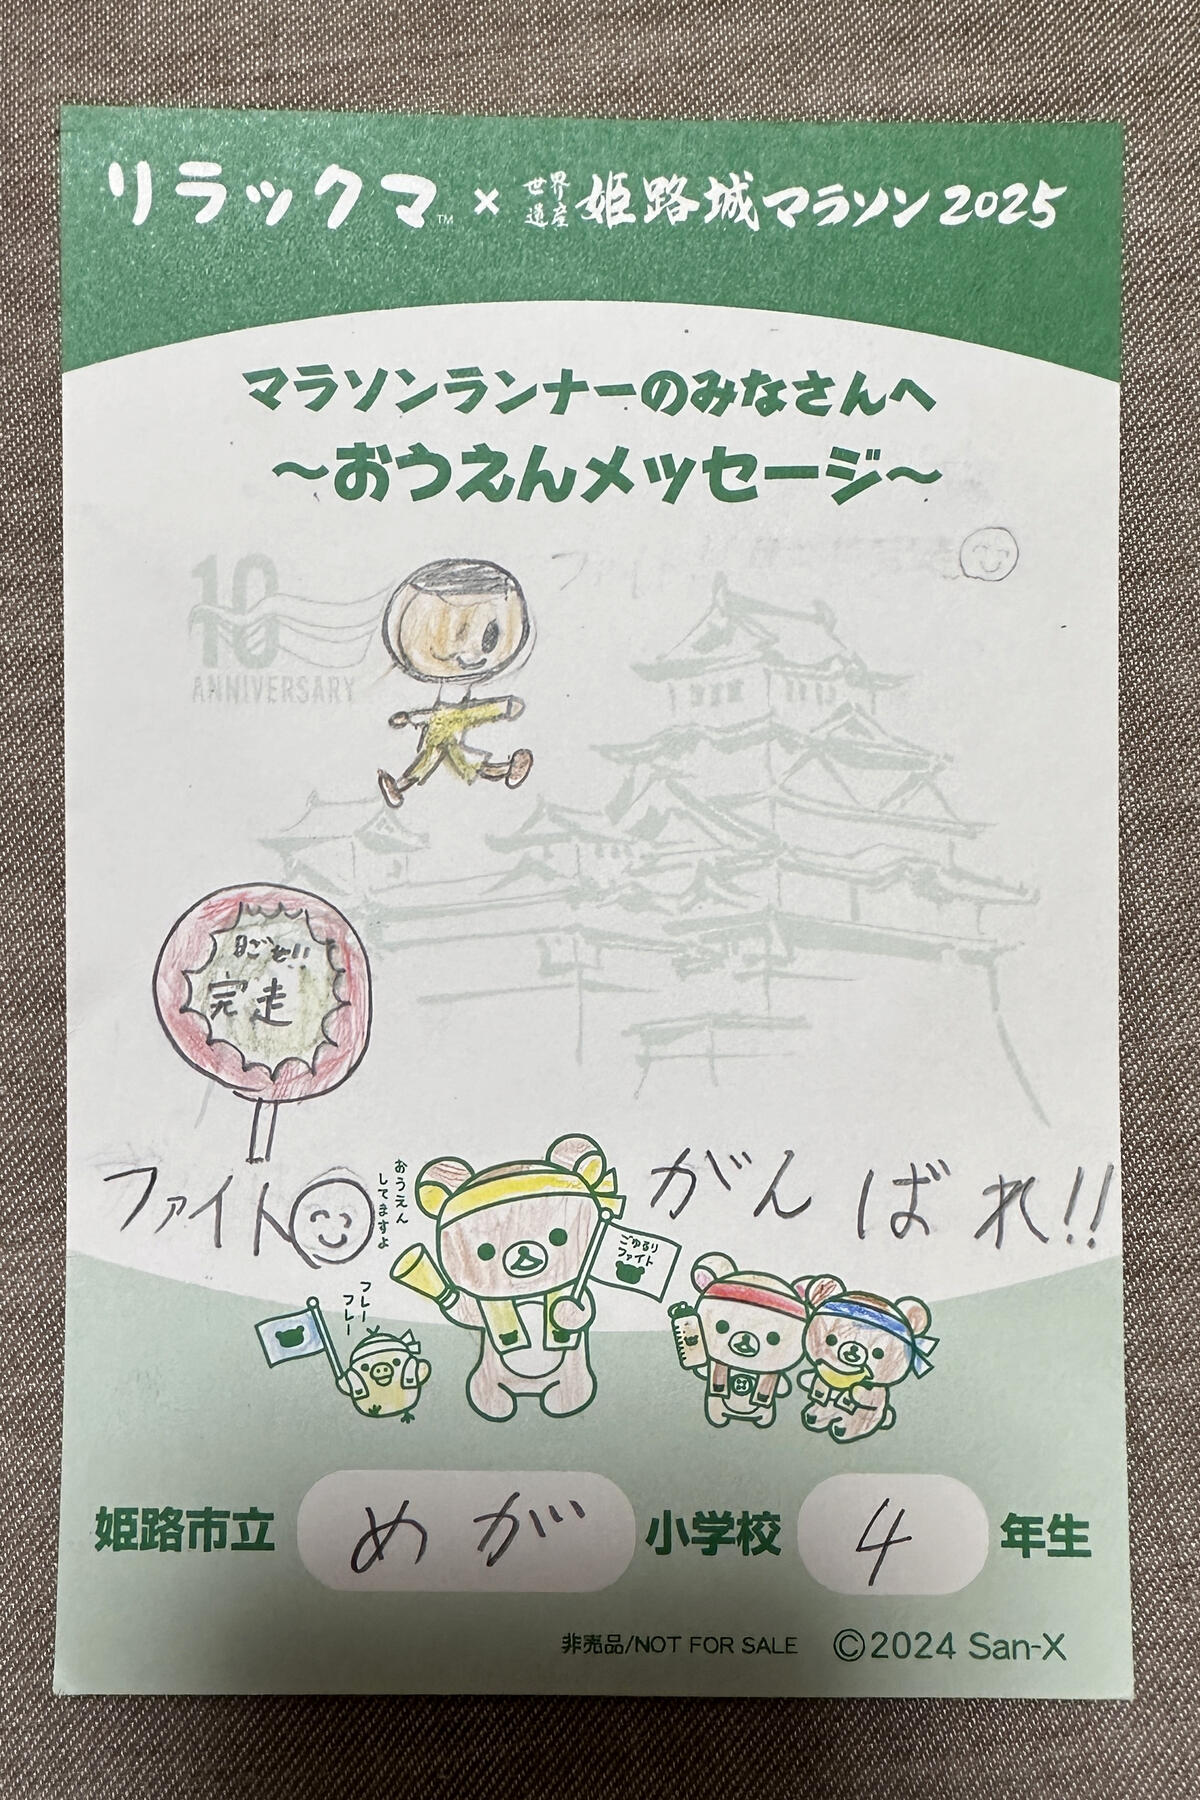 リラックマ™ × 世界遺産 姫路城マラソン2025
マラソンランナーのみなさんへ
～おうえんメッセージ～
ファイト
10
ANNIVERSARY
目ざせ!!
完走
ファイト
おうえん
してますよ
がんばれ!!
ごゆるり
ファイト
フレー
フレー
姫路市立 めが 小学校 4 年生
非売品/NOT FOR SALE ©2024 San-X